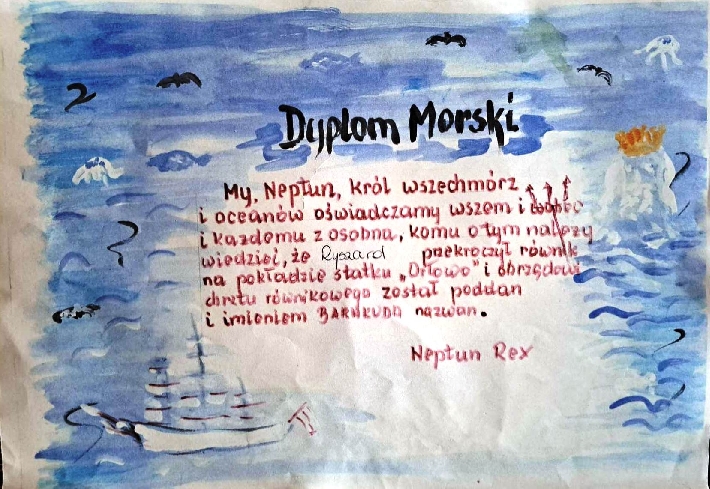 Dyplom Morski
My, Neptun, król wszechmórz
i oceanów oświadczamy wszem i wobec
i każdemu z osobna, komu o tym należy
wiedzieć, że Ryszard przekroczył równik
na pokładzie statku „Orłowo" i obrzędowi
chrztu równikowego został poddan
i imieniem BARAKUDA nazwan.
Neptun Rex